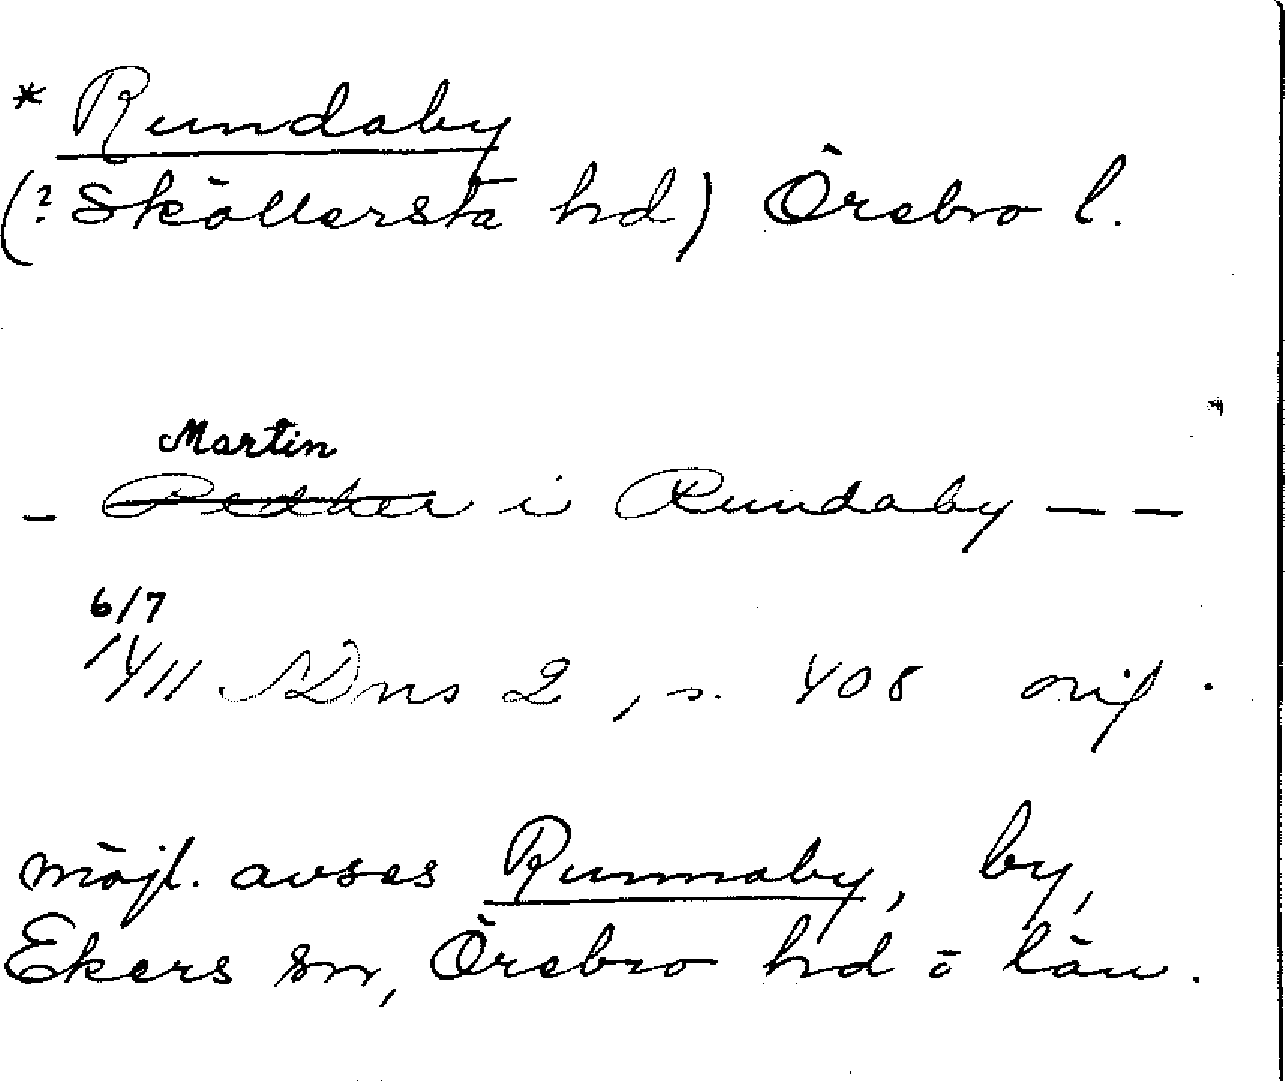 * Rundaby
(? Sköllersta hd) Örebro l.
Martin
- Pedher i Rundaby - -
6/7
1411 SDns 2, s. 408 orig.
möjl. avses Runnaby, by,
Ekers sn, Örebro hd o län.